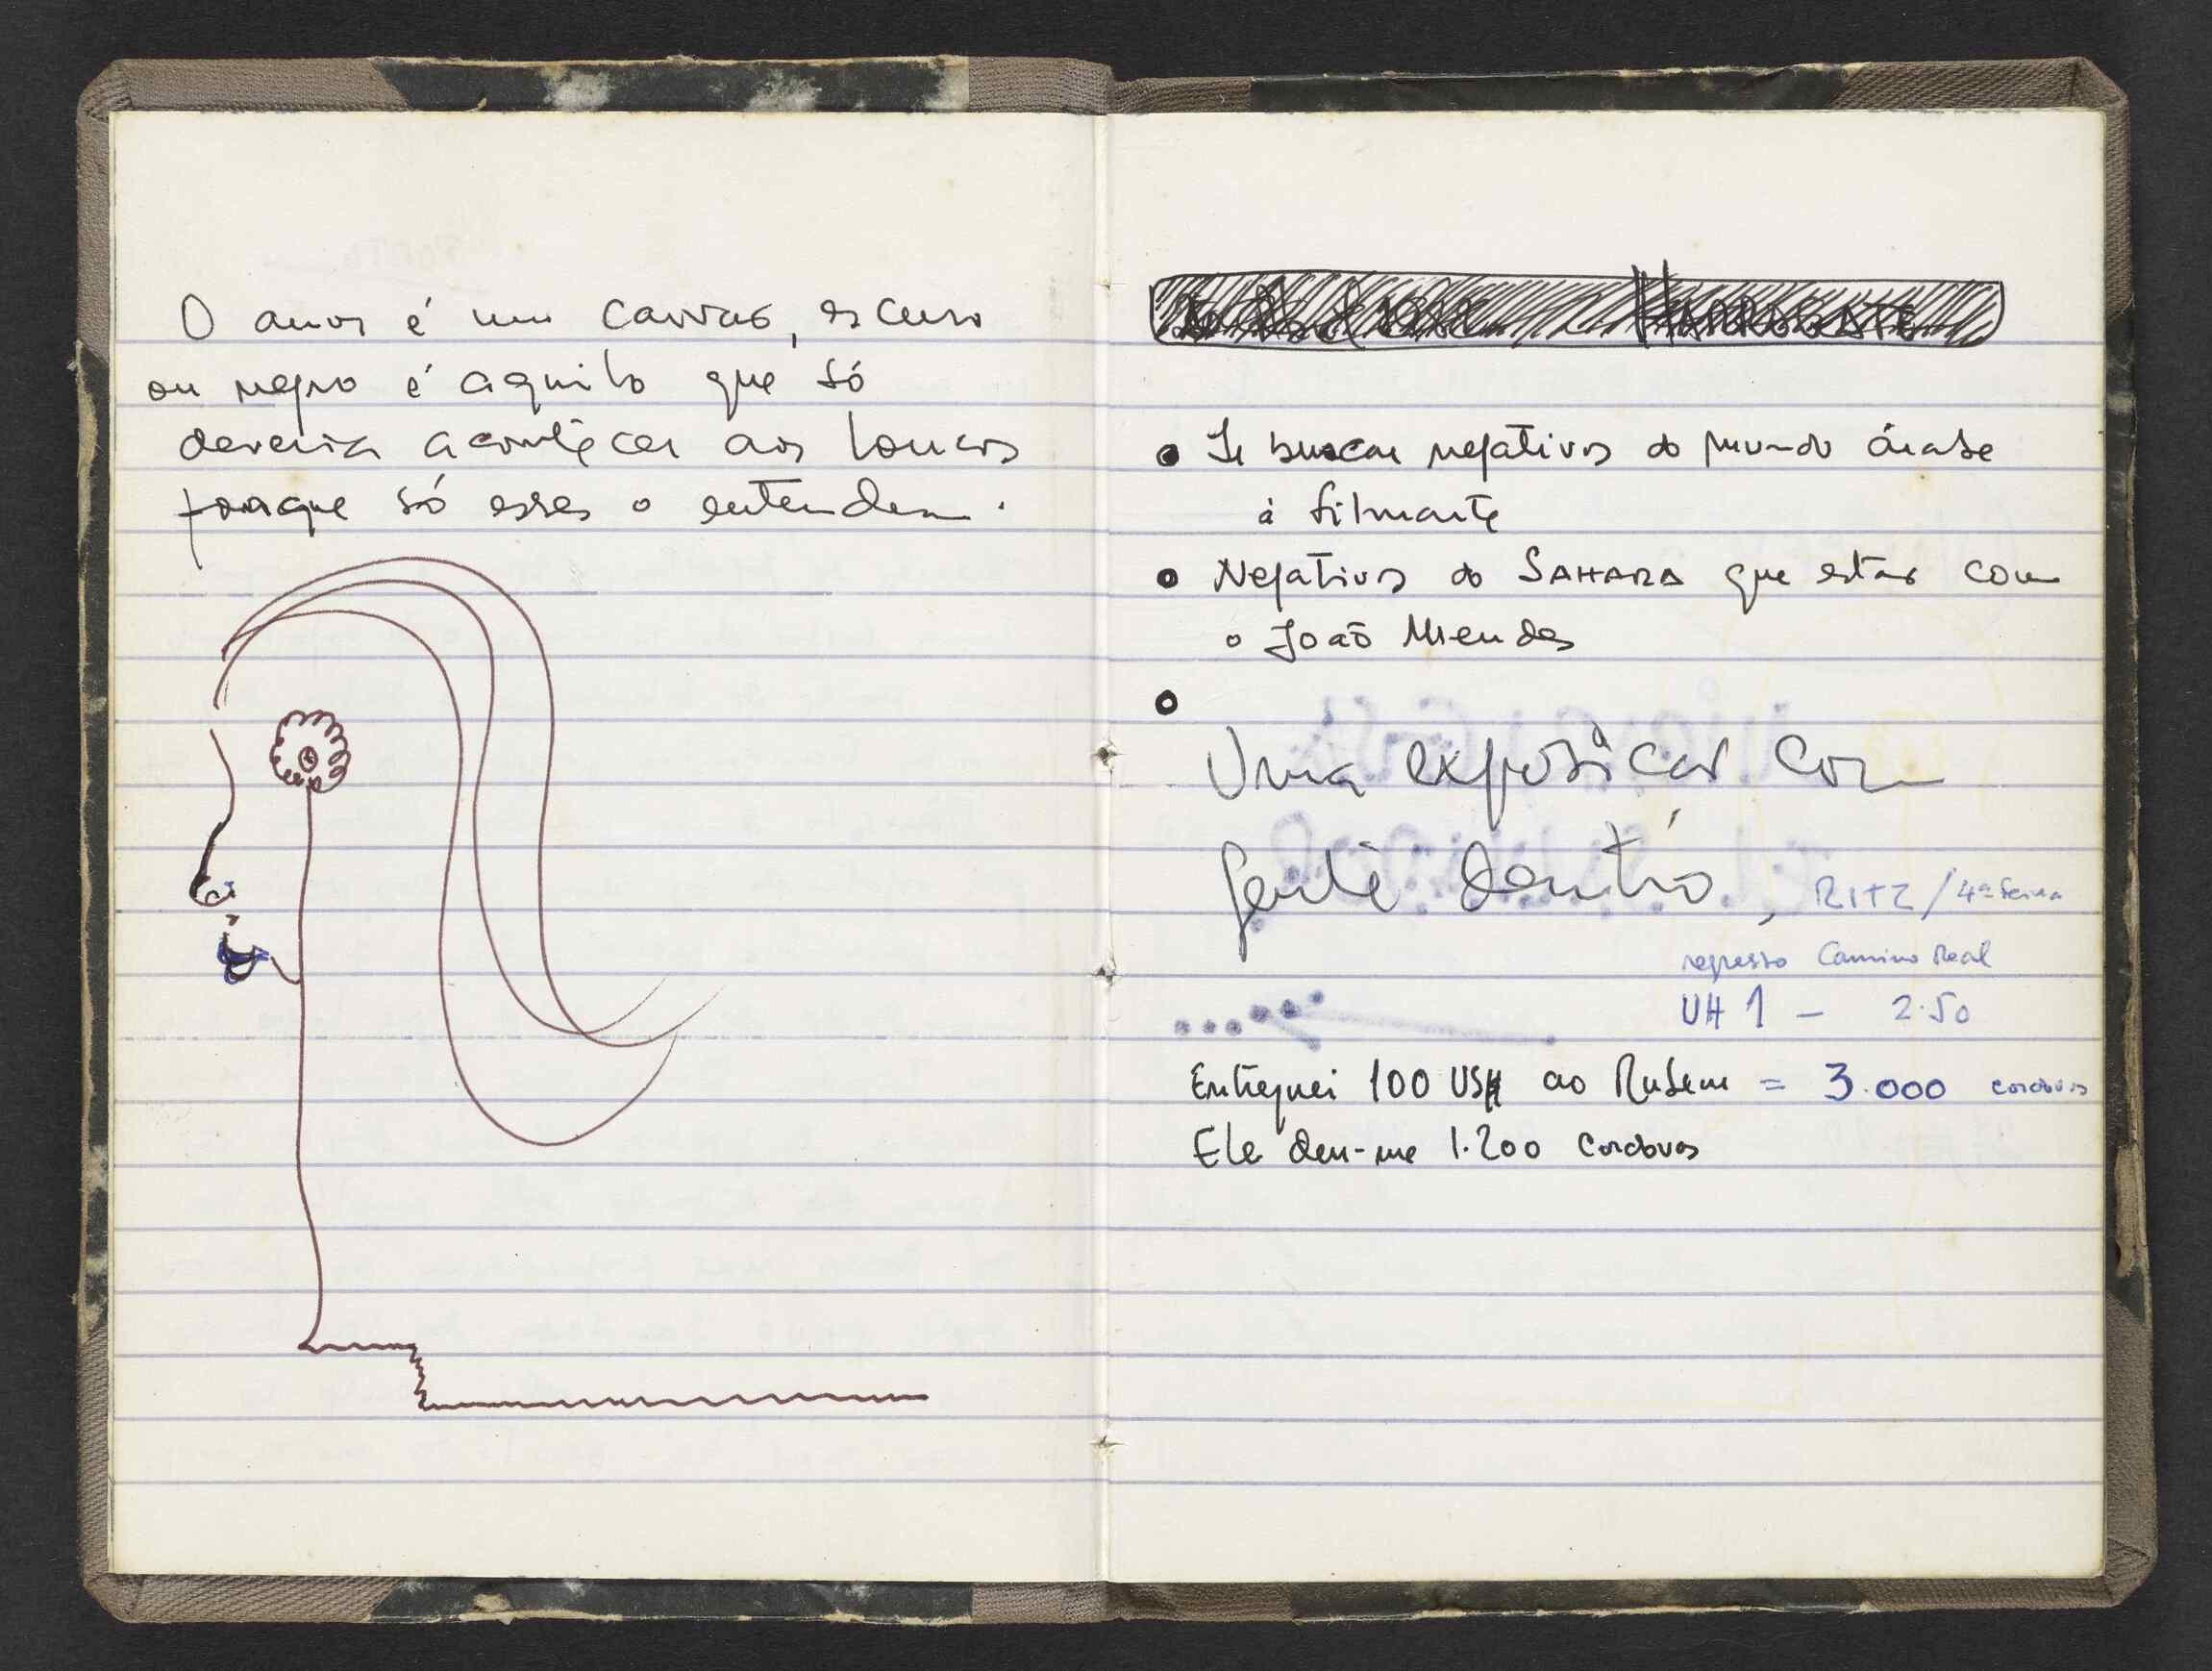 O amor é um carvão, escuro
ou negro é aquilo que só
deveria acontecer aos loucos
porque só esses o entendem.
HARROGATE
Ir buscar negativos do mundo árabe
à filmarte
Negativos do SAHARA que estão com
o João Mendes
Uma exposição com
gente dentro,
RITZ / 4ª feira
regresso Camino Real
UH 1 - 2.50
Entreguei 100 US$ ao Rubem = 3.000 cordovas
Ele deu-me 1.200 cordovas